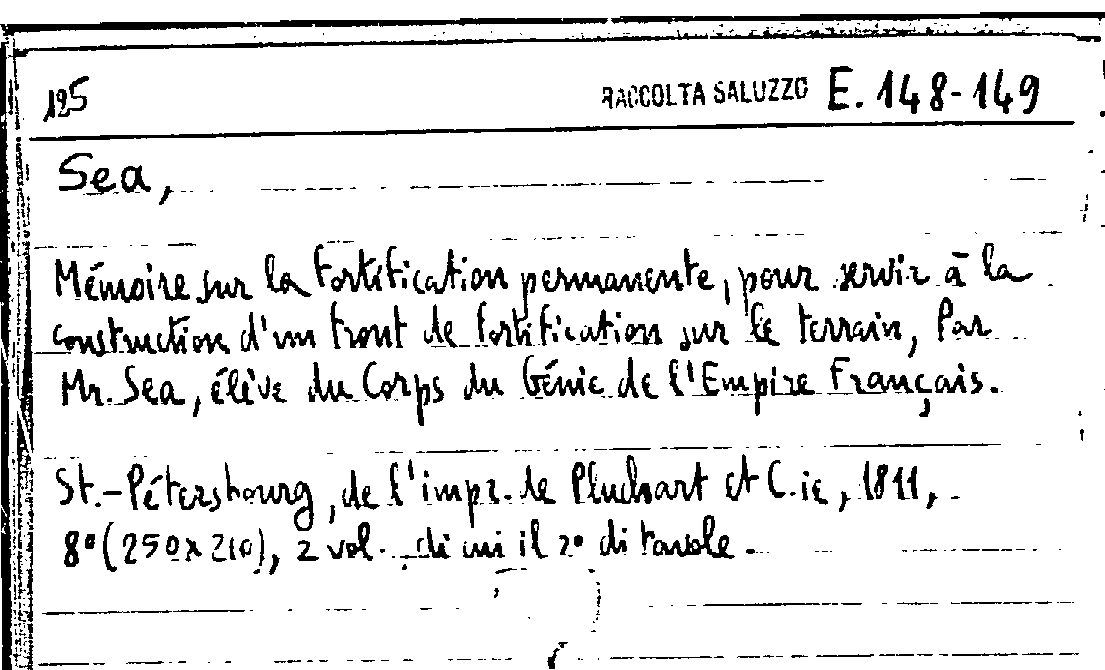 125 RACCOLTA SALUZZO E. 148-149
Sea,
Mémoire sur la fortification permanente, pour servir à la
construction d'un front de fortification sur le terrain, Par
Mr. Sea, élève du Corps du Génie de l'Empire Français.
St.-Pétersbourg, de l'impr. de Pluchart et C.ie, 1811,
8° (250x210), 2 vol. di cui il 2° di tavole.